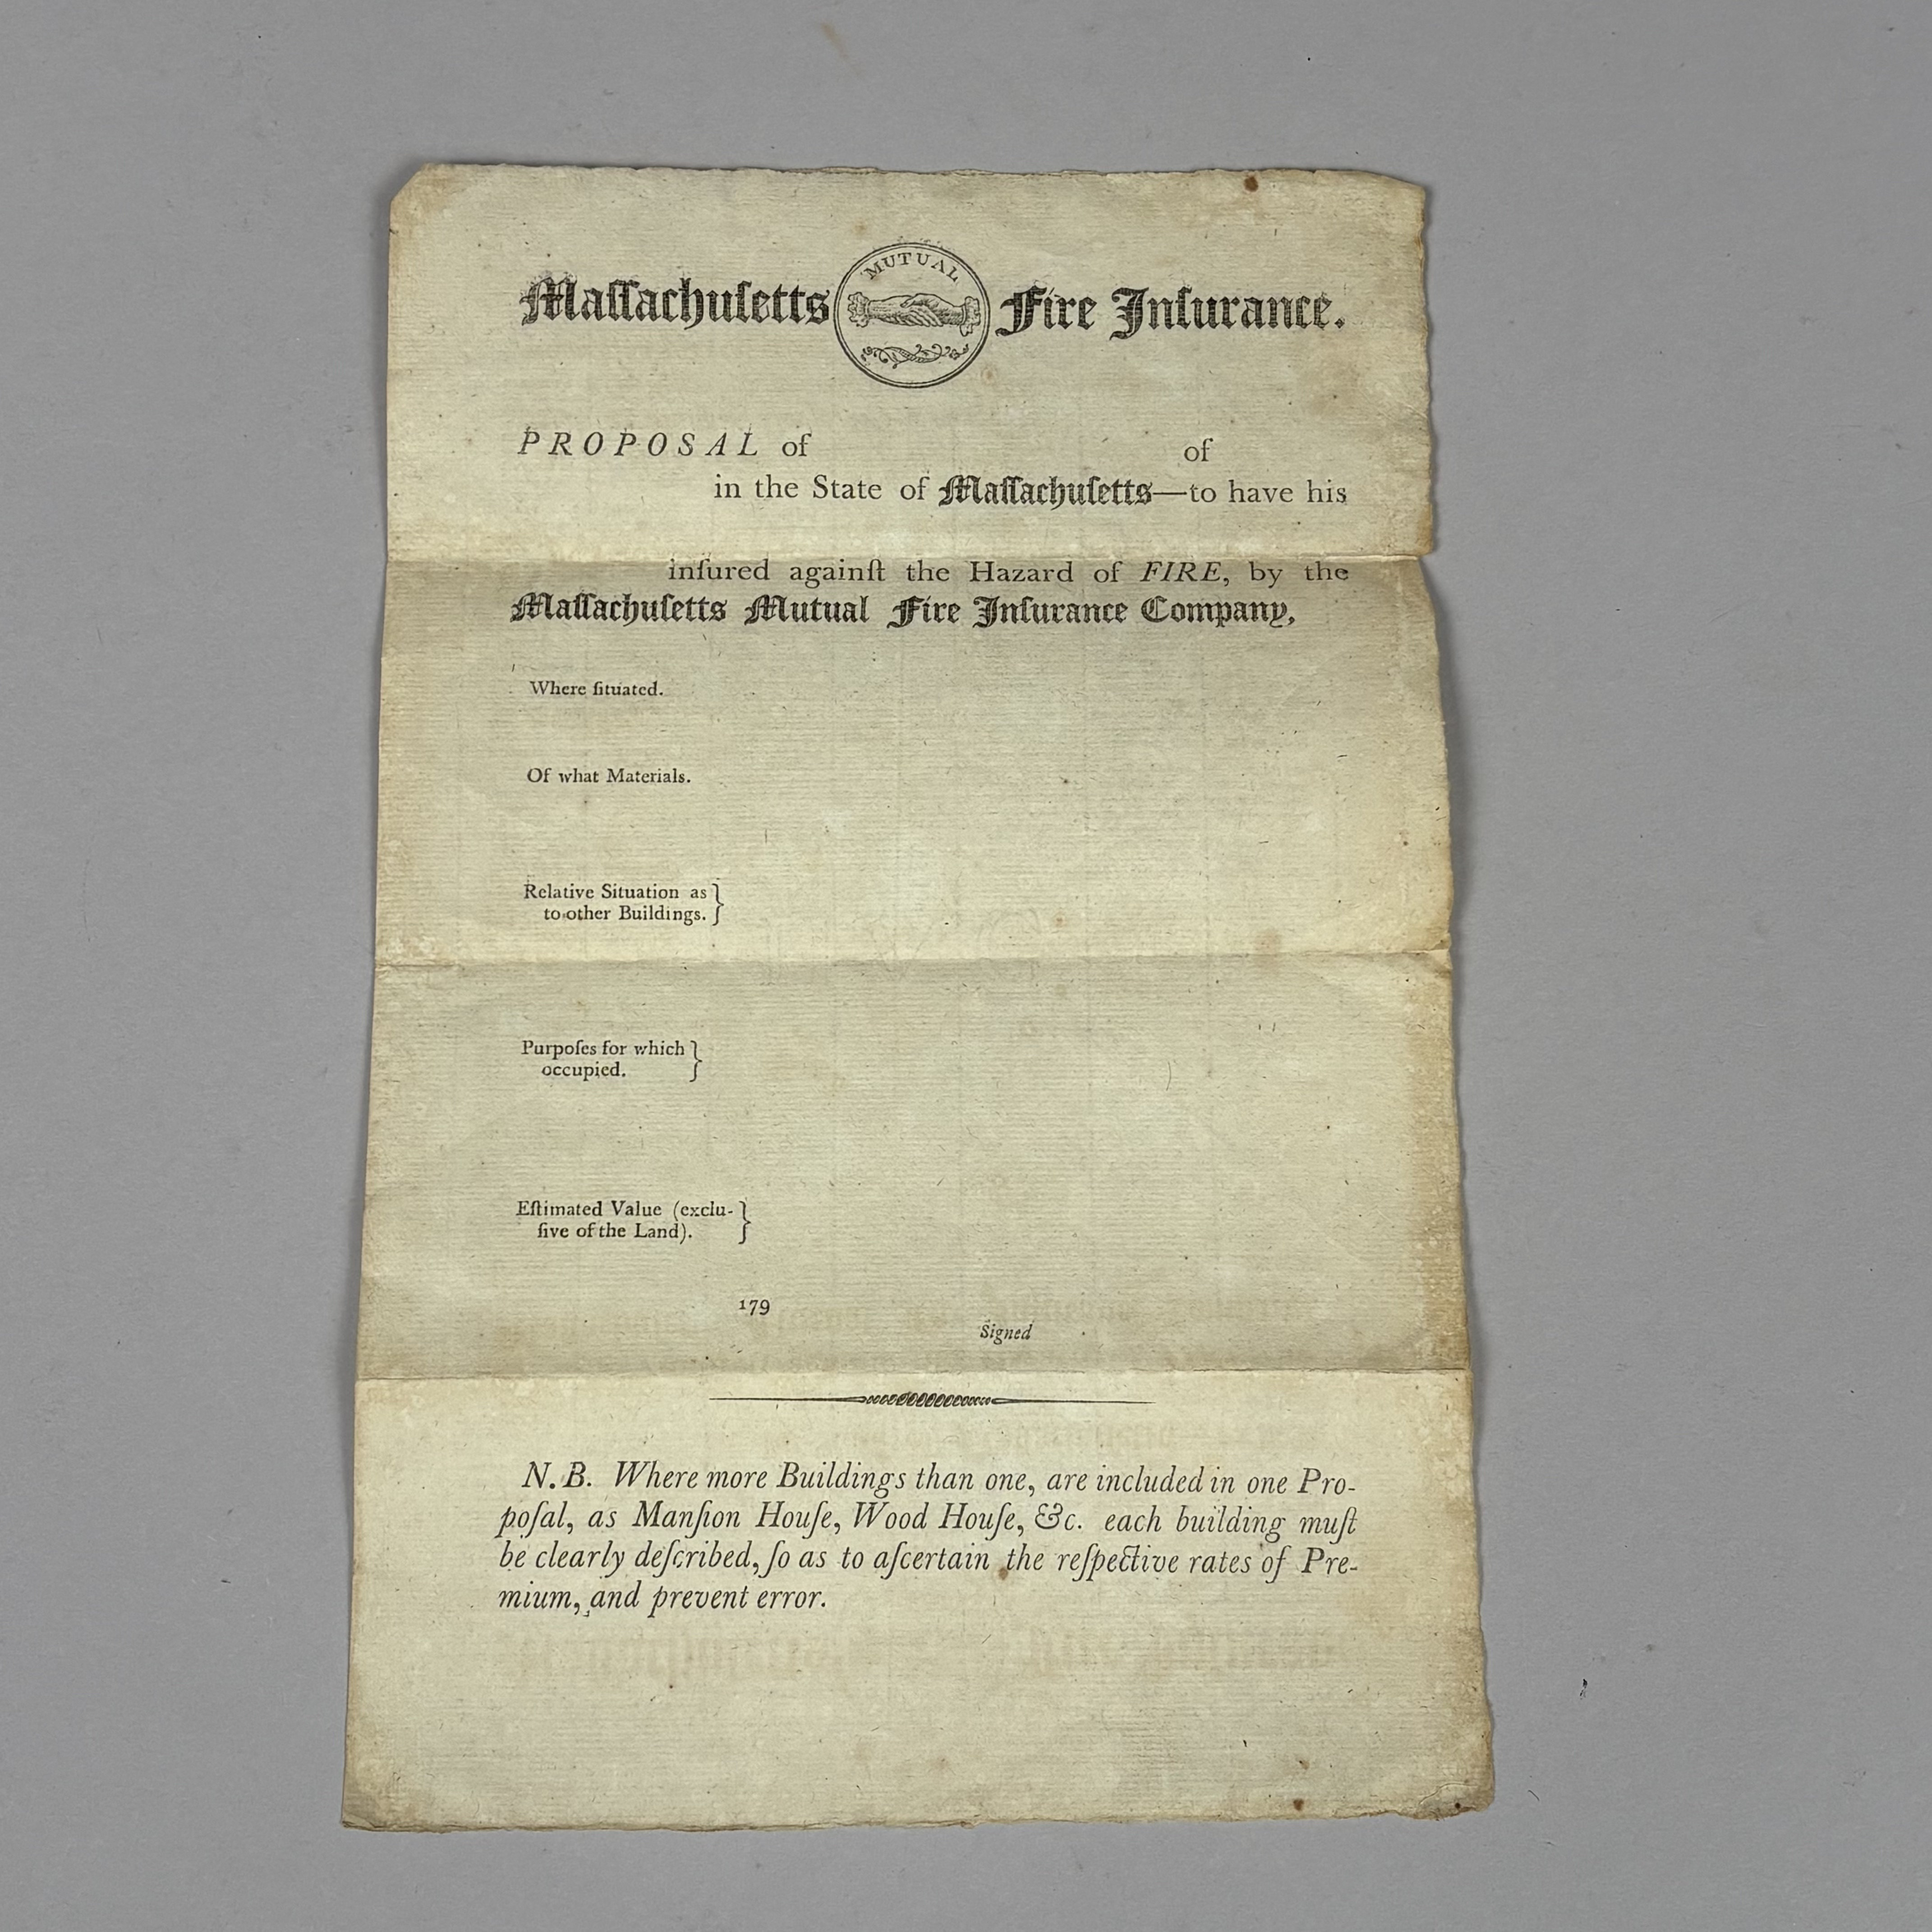 Maſſachuſetts MUTUAL Fire Inſurance.
PROPOSAL of of
in the State of Maſſachuſetts—to have his
inſured againſt the Hazard of FIRE, by the
Maſſachuſetts Mutual Fire Inſurance Company,
Where ſituated.
Of what Materials.
Relative Situation as }
to other Buildings.
Purpoſes for which }
occupied.
Eſtimated Value (exclu- }
ſive of the Land).
179
Signed
N. B. Where more Buildings than one, are included in one Pro-
poſal, as Manſion Houſe, Wood Houſe, &c. each building muſt
be clearly deſcribed, ſo as to aſcertain the reſpective rates of Pre-
mium, and prevent error.